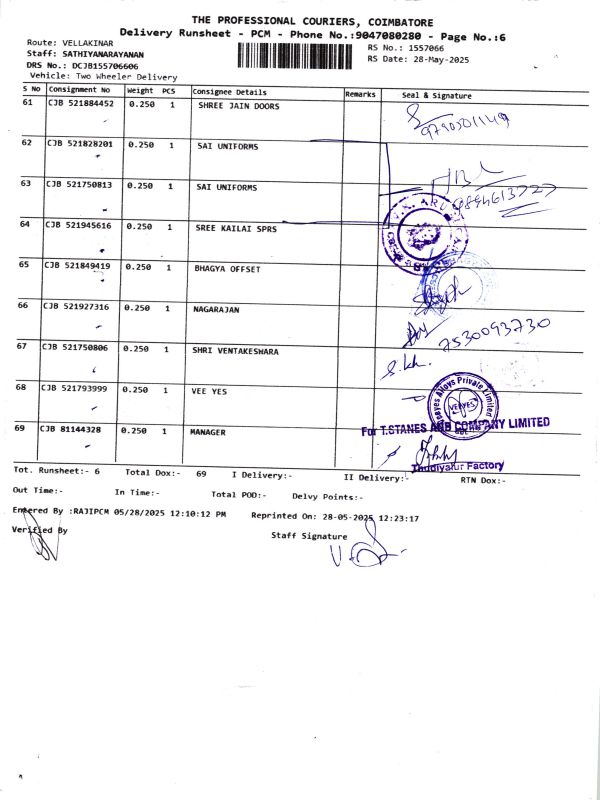 THE PROFESSIONAL COURIERS, COIMBATORE
Delivery Runsheet - PCM - Phone No.:9047080280 - Page No.:6
Route: VELLAKINAR
RS No.: 1557066
Staff: SATHIYANARAYANAN
RS Date: 28-May-2025
DRS No.: DCJB155706606
Vehicle: Two Wheeler Delivery
S No Consignment No Weight PCS Consignee Details Remarks Seal & Signature
61 CJB 521884452 0.250 1 SHREE JAIN DOORS
62 CJB 521828201 0.250 1 SAI UNIFORMS
63 CJB 521750813 0.250 1 SAI UNIFORMS
64 CJB 521945616 0.250 1 SREE KAILAI SPRS
65 CJB 521849419 0.250 1 BHAGYA OFFSET
66 CJB 521927316 0.250 1 NAGARAJAN
7530093730
67 CJB 521750806 0.250 1 SHRI VENTAKESWARA
S.kh.
68 CJB 521793999 0.250 1 VEE YES
Veeyes Alloys Private Limited
VEEYES
69 CJB 81144328 0.250 1 MANAGER
For T.STANES AND COMPANY LIMITED
Thudiyalur Factory
Tot. Runsheet:- 6 Total Dox:- 69 I Delivery:- II Delivery:- RTN Dox:-
Out Time:- In Time:- Total POD:- Delvy Points:-
Entered By :RAJIPCM 05/28/2025 12:10:12 PM Reprinted On: 28-05-2025 12:23:17
Verified By
Staff Signature